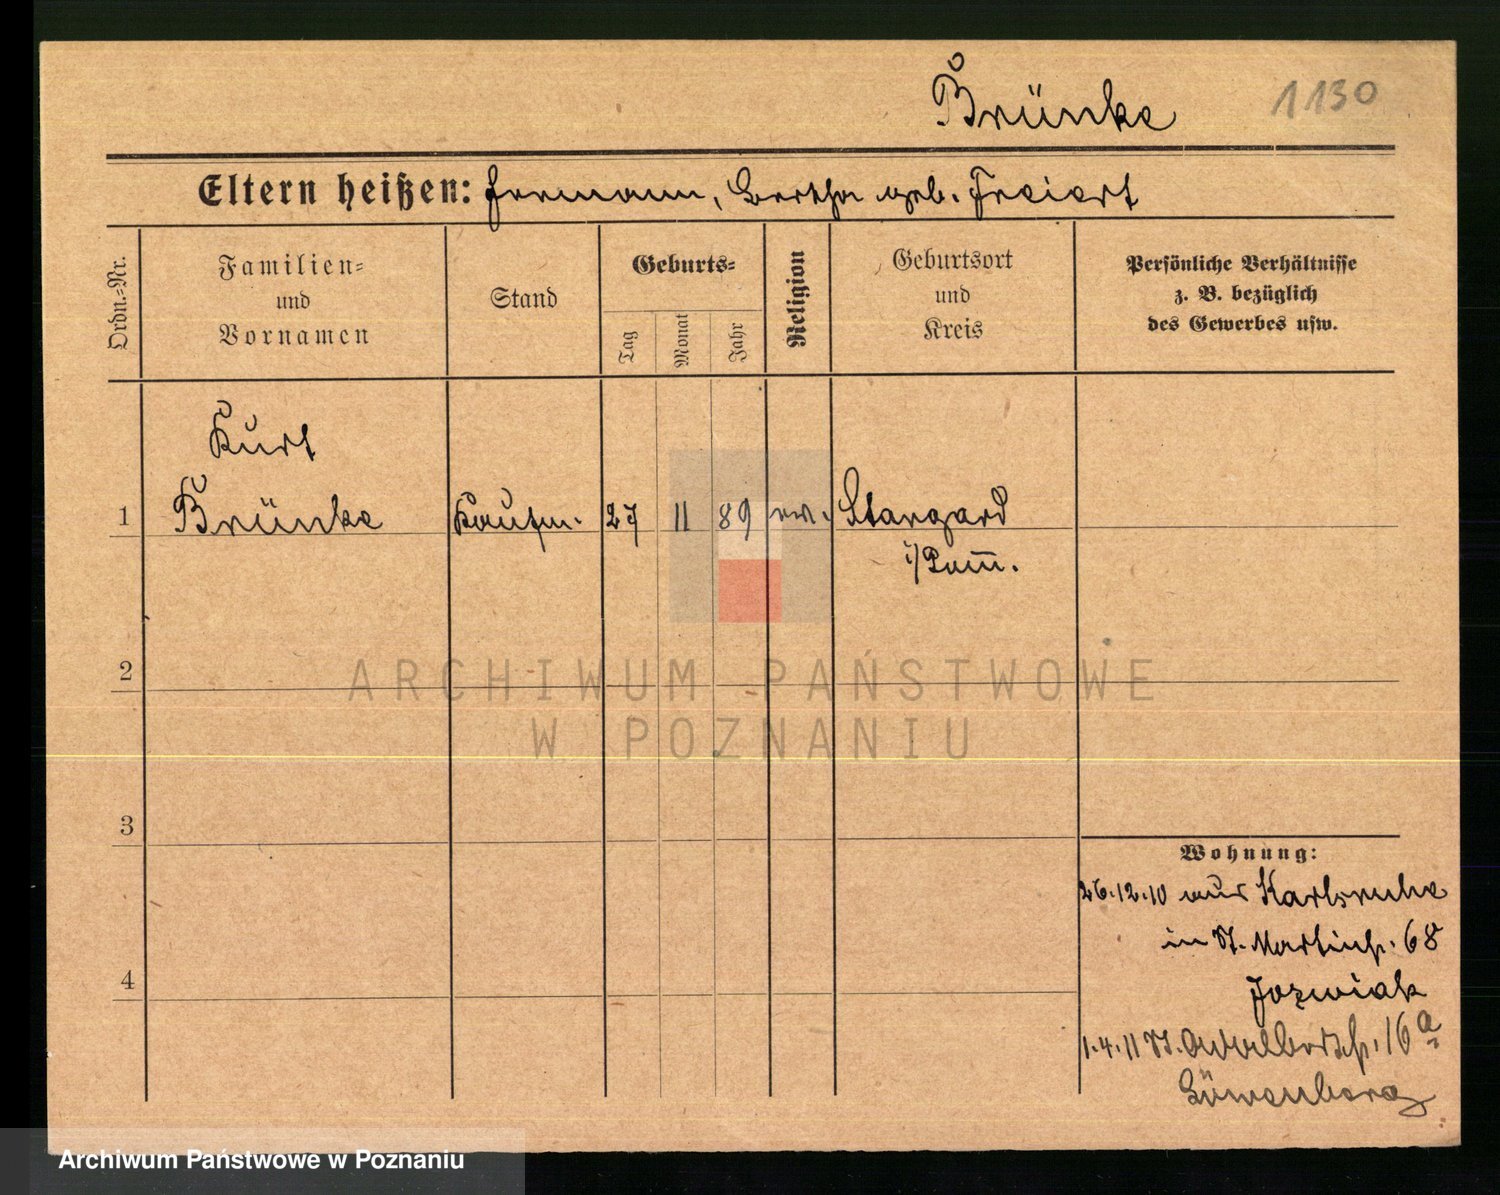 Brünke 1130
Eltern heißen: Hermann, Bertha geb. Freiert
Ordn.-Nr.
Familien-
und
Vornamen
Stand
Geburts-
Tag
Monat
Jahr
Religion
Geburtsort
und
Kreis
Persönliche Verhältnisse
z. B. bezüglich
des Gewerbes usw.
Kurt
1 Brünke Kaufm. 27 11 89 ev. Stargard
i/Pom̅.
2
ARCHIWUM PAŃSTWOWE
W POZNANIU
3
Wohnung:
26.12.10 aus Karlsruhe
in St. Martinstr. 68
Jozwiak
4
1.4.11 St. Adalbertstr. 16a
Löwenberg
Archiwum Państwowe w Poznaniu